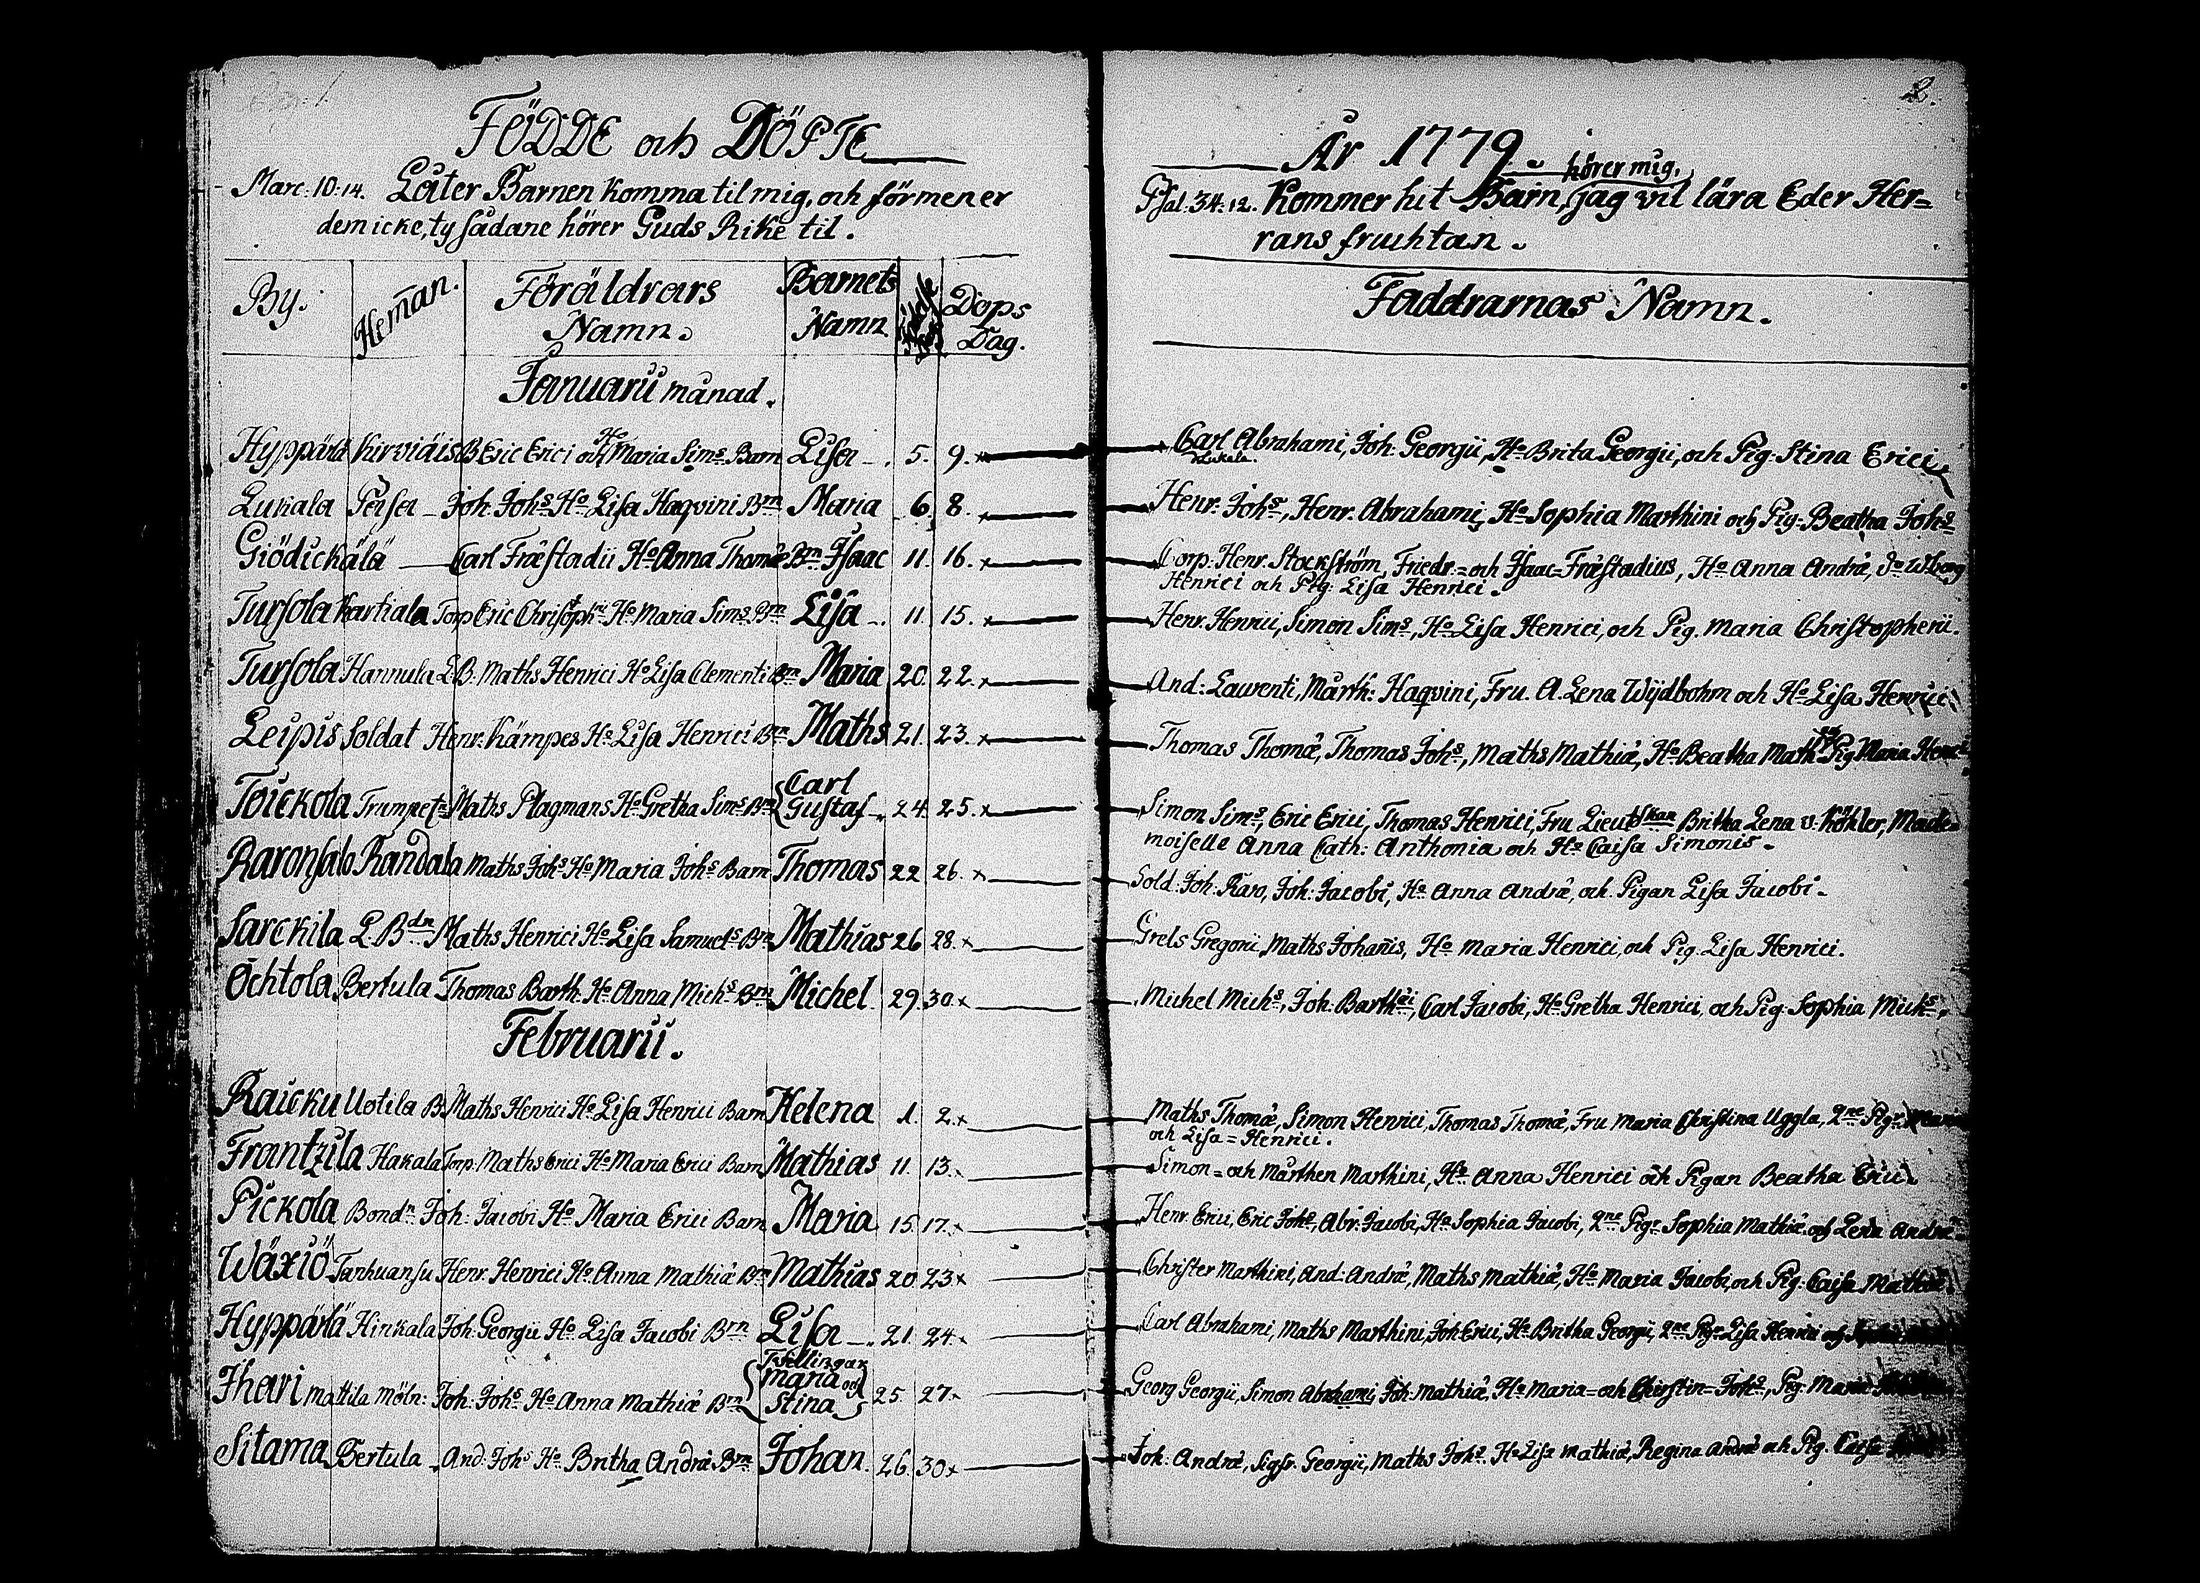 FÖDDE och DÖPTE
Marc: 10:14. Låter Barnen komma til mig, och förmener
dem icke, ty sådane hörer Guds Rike til.
By. Heman. Föräldrars Namn. Barnets Namn Dops Dag.
Januarii månad.
Hyppärä Kirviäis B Eric Erici och Ho Maria Sims Barn Lisa 5. 9.
Lukala Peisa Joh. Johs Ho Lisa Haqvini Brn Maria 6. 8.
Giödickälä Carl Fræstadii Ho Anna Thomæ Brn Isaac 11. 16.
Tursola Kartiala Torp Eric Christophri Ho Maria Sims Brn Lisa 11. 15.
Tursola Hannula L:B: Maths Henrici Ho Lisa Clementi Brn Maria 20. 22.
Leipis Soldat Henr. Kämpes Ho Lisa Henrici Brn Maths 21. 23.
Toickola Trumpet: Maths Plagmans Ho Gretha Sims Brn { Carl Gustaf 24. 25.
Raronsalo Randala Maths Johs Ho Maria Johs Barn Thomas 22 26.
Sarckila L. Bdn Maths Henrici Ho Lisa Samuels Brn Mathias 26 28.
Ochtola Bertula Thomas Barth. Ho Anna Michs Brn Michel 29. 30.
Februarii.
Raicku Uotila B. Maths Henrici Ho Lisa Henrici Barn Helena 1. 2.
Frantzila Hakala Torp. Maths Erici Ho Maria Erici Barn Mathias 11. 13.
Pickola Bondn Joh: Jacobi Ho Maria Erici Barn Maria 15. 17.
Wäxiö Tanhuansu Henr. Henrici Ho Anna Mathiæ Brn Mathias 20. 23
Hyppärlä Hinkala Joh: Georgii Ho Lisa Jacobi Brn Lisa 21. 24.
Ihari Mattila Möln: Joh: Johs Ho Anna Mathiæ Brn { Tvillingar Maria och Stina } 25. 27.
Sitama Bertula And: Johs Ho Britha Andræ Brn Johan 26. 30
2.
År 1779
hörer mig,
Psal: 34:12. Kommer hit Barn, jag vil lära Eder Her=
rans fruchtan.
Faddrarnas Namn.
Carl Abrahami, Joh: Georgii, Ho Brita Georgii, och Pig: Stina Erici
Henr. Johs, Henr. Abrahami, Ho Sophia Marthini och Pig: Beatha Johs
Corp: Henr. Stockström, Friedr.= och Isaac Fræstadius, Ho Anna Andræ, Do
Henrici och Pig: Lisa Henrici.
Henr. Henrici, Simon Sims, Ho Lisa Henrici, och Pig. Maria Christopherii.
And: Laurenti, Märth: Haqvini, Fru A. Lena Wijdbohm och Ho Lisa Henrici
Thomas Thomæ, Thomas Johs, Maths Mathiæ, Ho Beatha Math Pig Maria
Simon Sims, Eric Erici, Thomas Henrici, Fru Lieutskan Britha Lena v. Köhler, Made=
moiselle Anna Cath: Anthonia och Ho Caisa Simonis.
Sold: Joh: Raro, Joh: Jacobi, Ho Anna Andræ, och Pigan Lisa Jacobi.
Grels Gregorii, Maths Johanis, Ho Maria Henrici, och Pig: Lisa Henrici.
Michel Michs, Joh: Barthi, Carl Jacobi, Ho Gretha Henrici och Pig: Sophia Michs.
Maths Thomæ, Simon Henrici, Thomas Thomæ, Fru Maria Christina Uggla, 2ne Pigr
och Lisa = Henrici.
Simon= och Mårthen Marthini, Ho Anna Henrici och Pigan Beatha Erici.
Henr Erici, Eric Johs, Abr: Jacobi, Ho Sophia Jacobi, 2ne Pigr Sophia Mathiæ och Lena Andræ
Christer Marthini, And: Andræ, Maths Mathiæ, Ho Maria Jacobi, och Pig: Caisa Mathiæ
Carl Abrahami, Maths Marthini, Joh Erici, Ho Britha Georgii, 2ne Pigr Lisa Henrici och
Georg Georgii, Simon Abrahami, Joh: Mathiæ, Ho Maria= och Christin= Johs, Pig: Maria
Joh: Andræ, Sigfr. Georgii, Maths Johs, Ho Lisa Mathiæ, Regina Andræ och Pig: Caisa